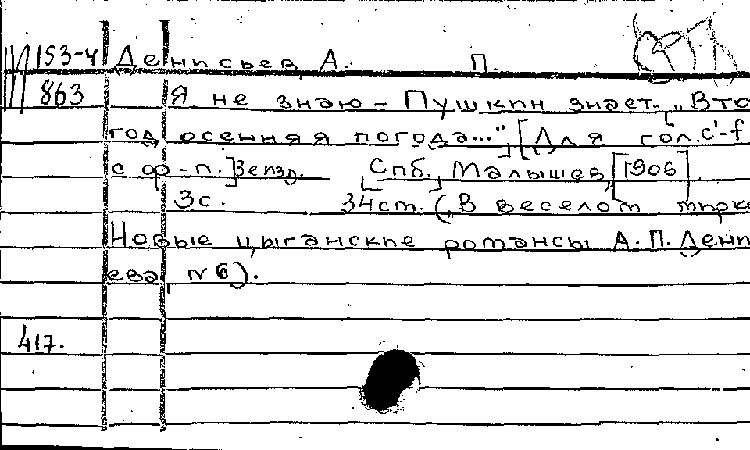 153-4 Денисьев, А. П.
863 Я не знаю - Пушкин знает. „В то
год осенняя погода..." [Для гол. c'-f
с ф-п.] 3 экз. [Спб.], Малышев, [1906].
3с. 34 cm. („В веселом
Новые цыганские романсы А. П. Денись
ева, N 6).
417.